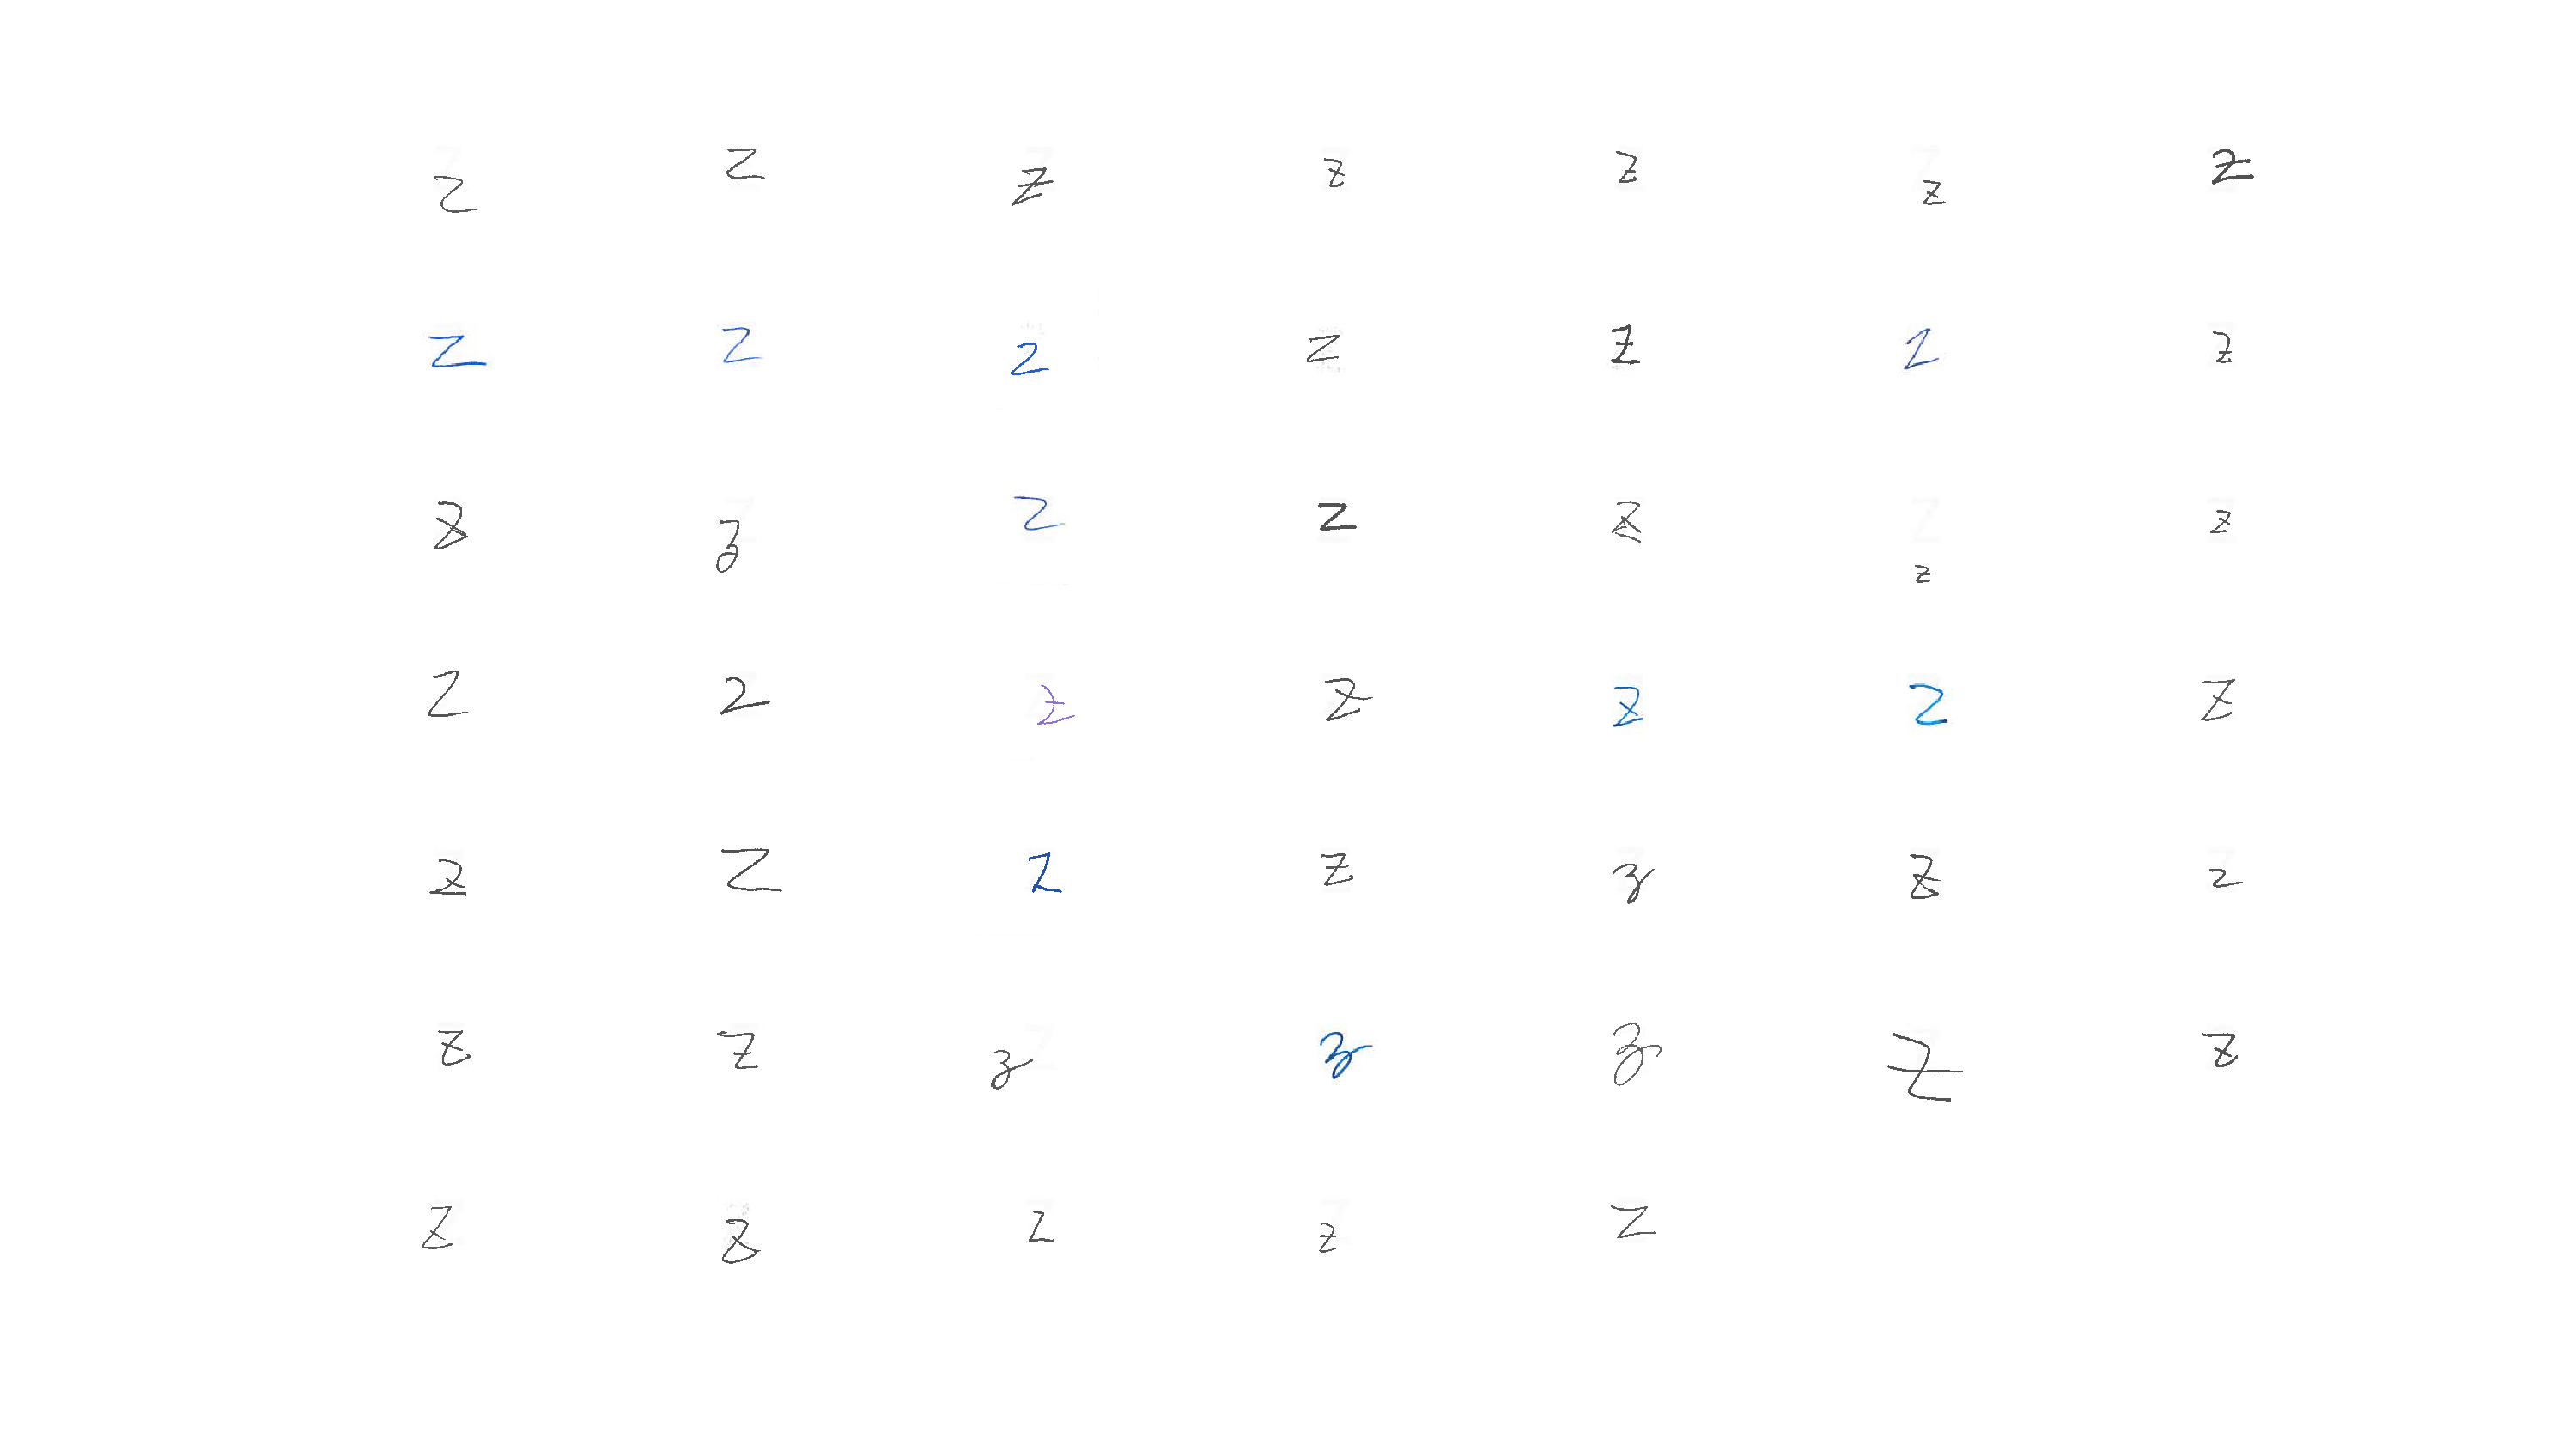 z z z z z z z
z z z z z z z
z z z z z z z
z z z z z z z
z z z z z z z
z z z z z z z
z z z z z